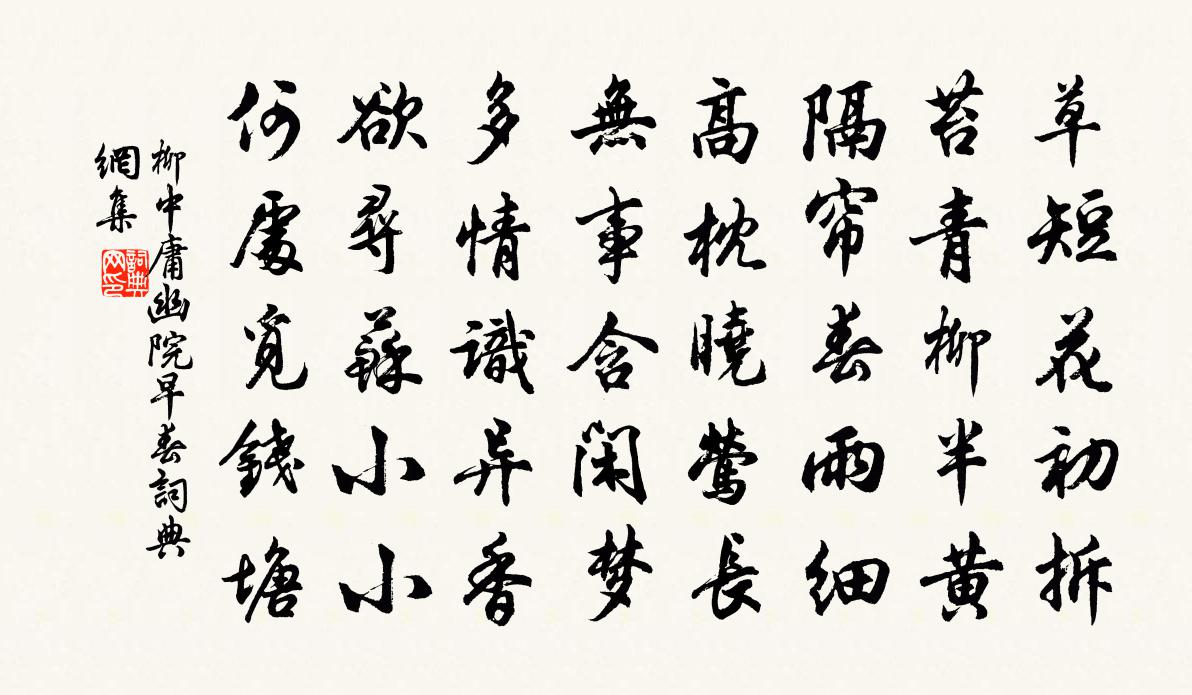 草短花初拆
苔青柳半黄
隔帘春雨细
高枕曉莺長
無事含閑梦
多情識异香
欲尋蘇小小
何處覓錢塘
柳中庸幽院早春詞典
網集
詞典网印